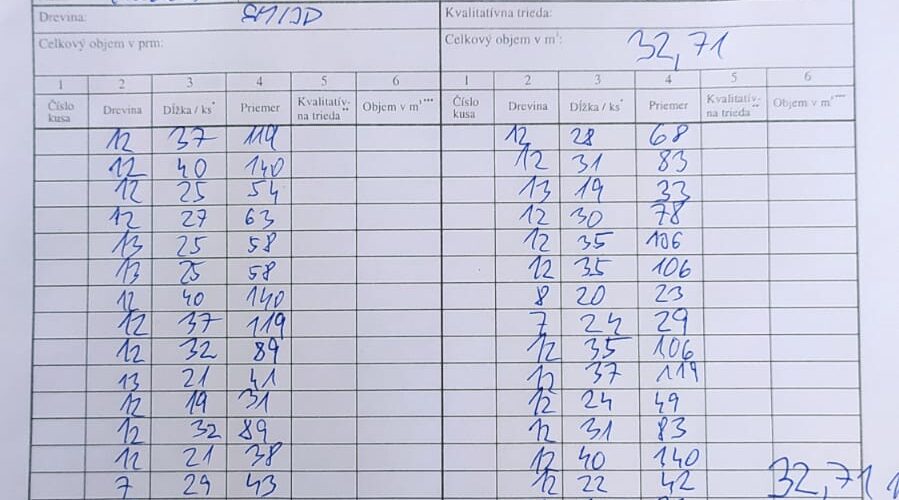 Drevina: SM/JD Kvalitatívna trieda:
Celkový objem v prm: Celkový objem v m³: 32,71
1 2 3 4 5 6 1 2 3 4 5 6
Číslo kusa Drevina Dĺžka / ks* Priemer Kvalitatív-na trieda** Objem v m³*** Číslo kusa Drevina Dĺžka / ks* Priemer Kvalitatív-na trieda** Objem v m³***
12 37 119 12 28 68
12 40 140 12 31 83
12 25 54 13 19 33
12 27 63 12 30 78
13 25 58 12 35 106
13 25 58 12 35 106
12 40 140 8 20 23
12 37 119 7 24 29
12 32 89 12 35 106
13 21 41 12 37 119
12 19 31 12 24 49
12 32 89 12 31 83
12 21 38 12 40 140
7 29 43 12 22 42 32,71